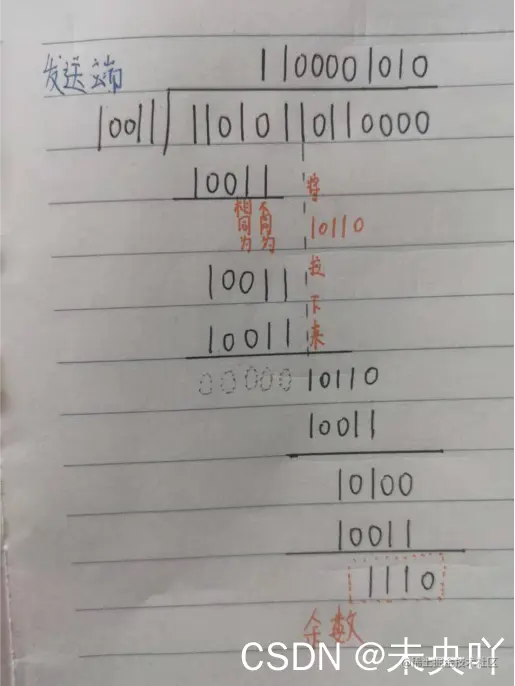 发送端 1100001010
10011 11010110110000
10011 将
相同为 不同为 10110
10011 拉
下
10011 来
00000 10110
10011
10100
10011
1110
余数
CSDN @未央吖
@稀土掘金技术社区